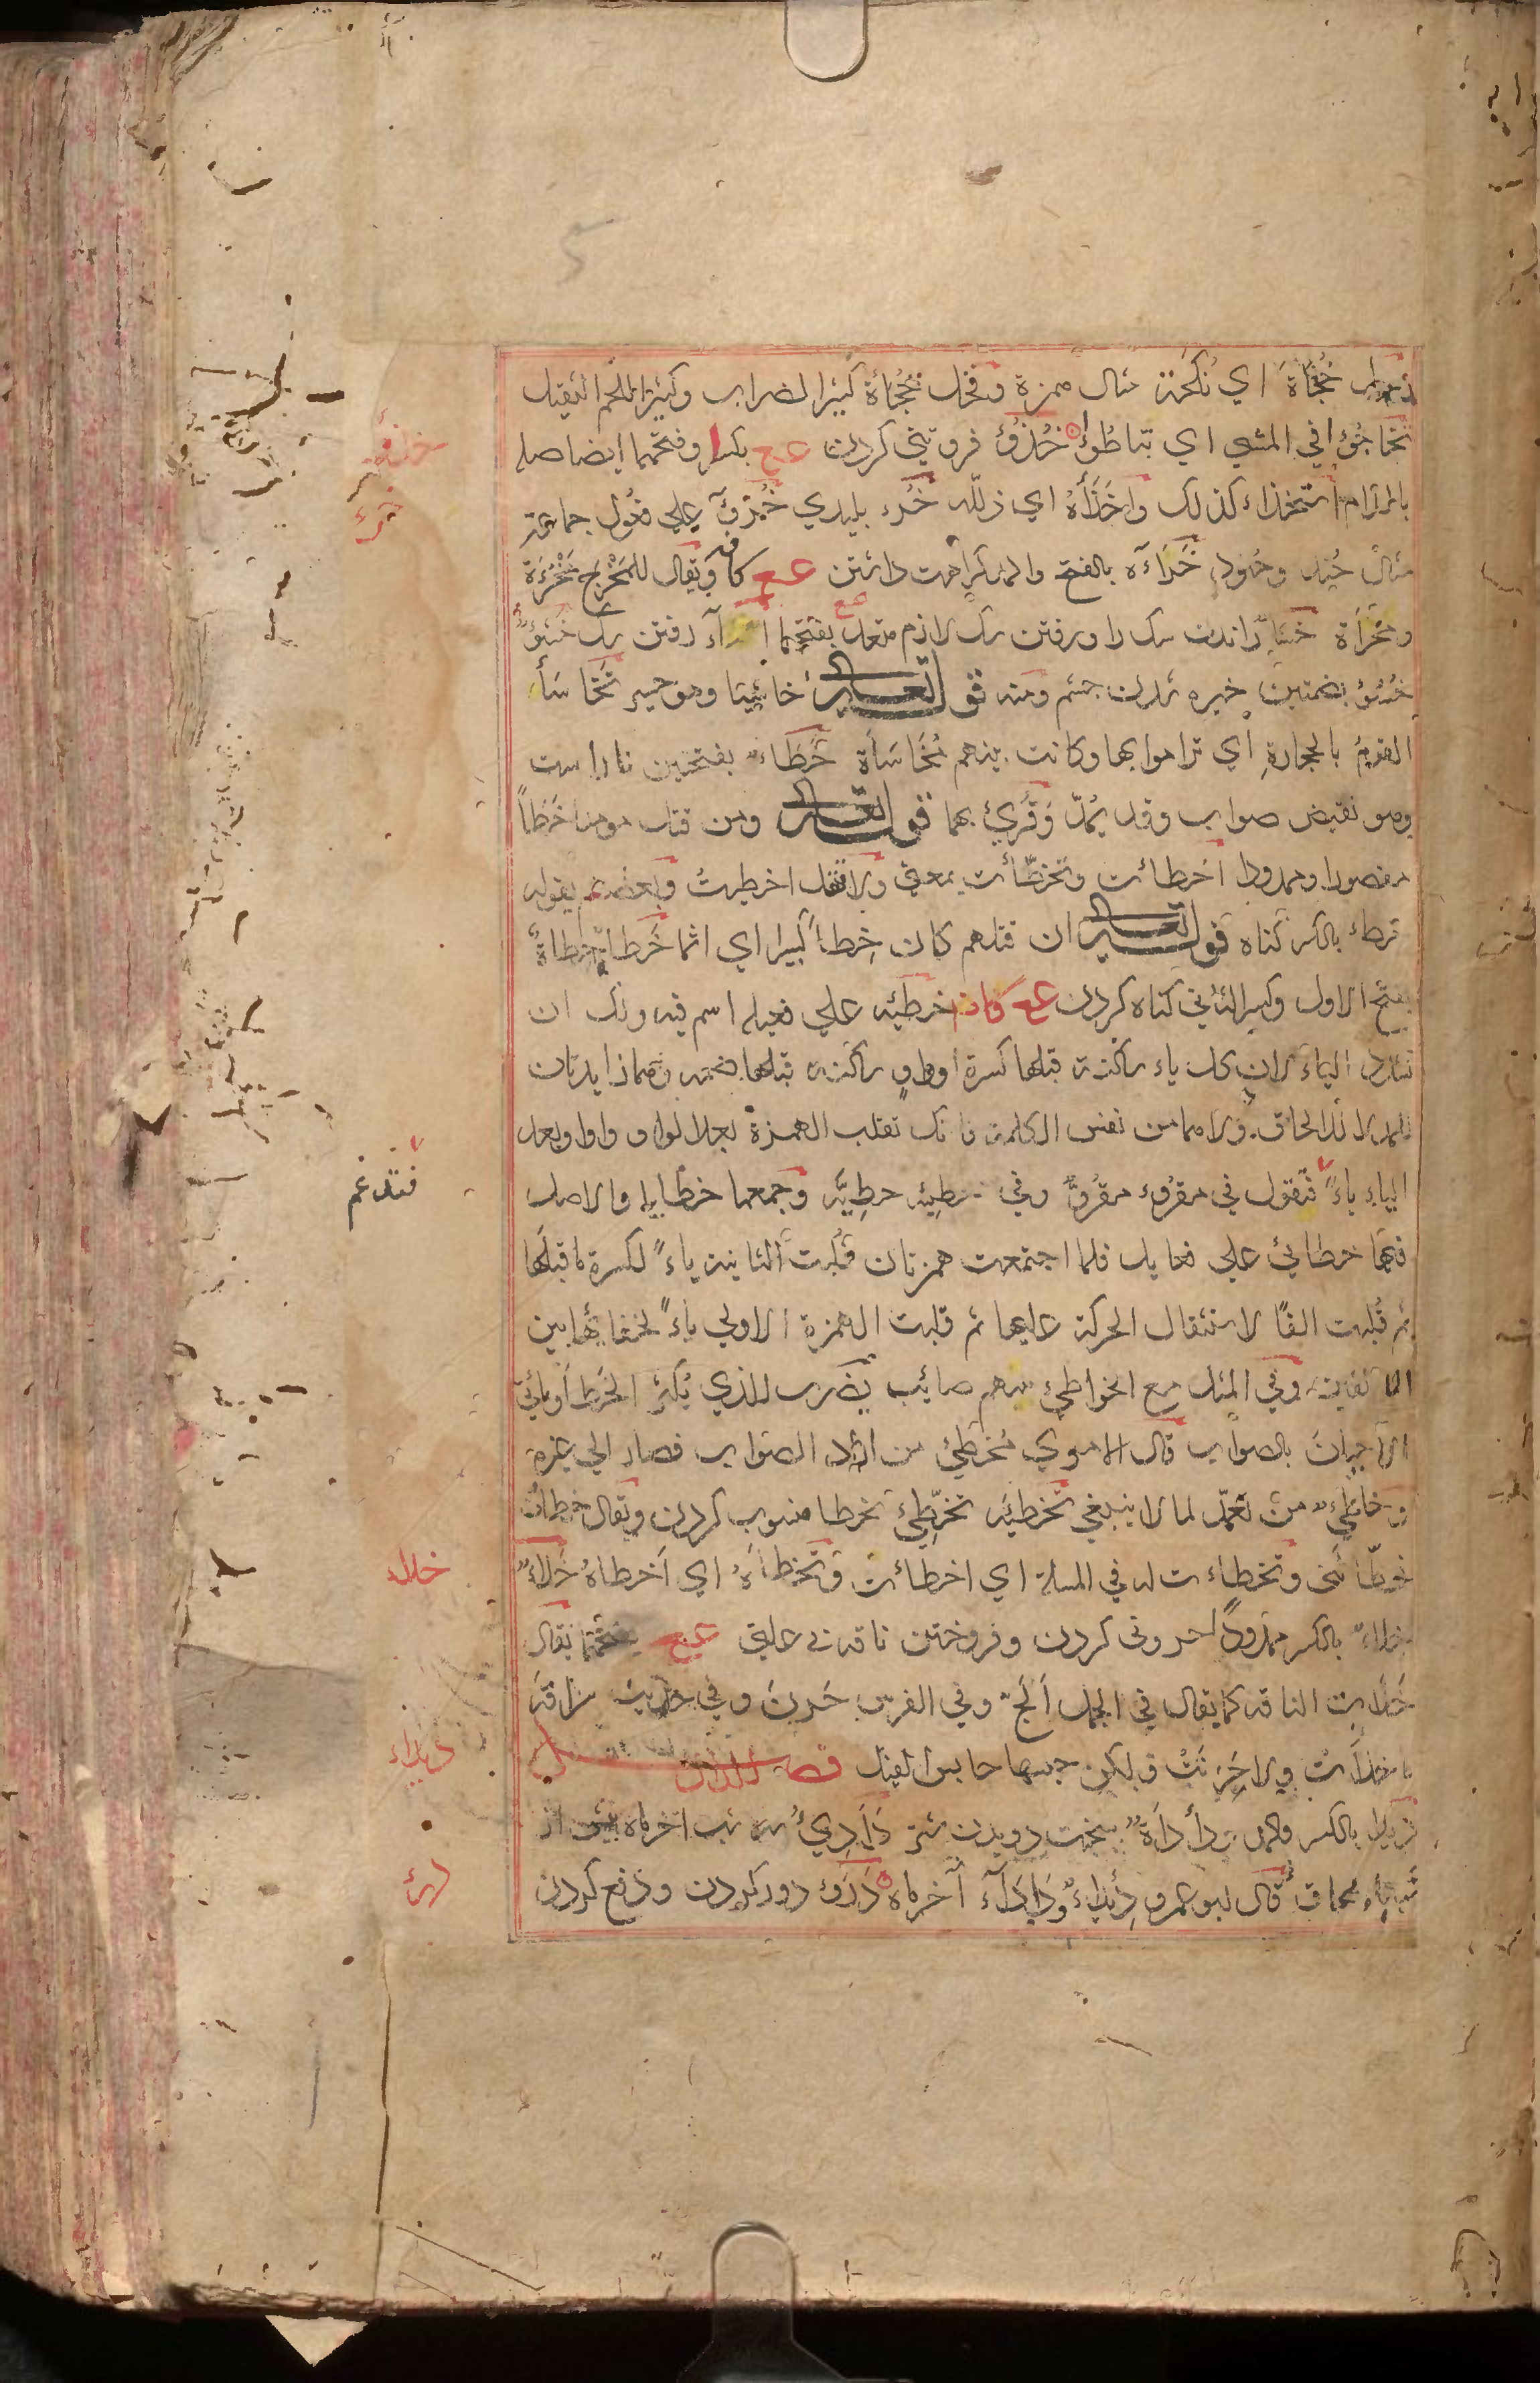 خُجَأَة اي نُكَحَة مثال همزة وفحل خُجَأة كثير الضراب وكثير اللحم الثقيل
تخاجؤ في المشي اي تباطؤ خُذُؤ فروتني كردن عع بكسر وفتحهما ايضا صله
باللام استخذاء كذلك واخذَأهُ اي ذلله خُرء بليدي خُروٌ علي فُعُول جماعة
مثال جُند وجُنود خَرَاءَه بالفتح والمد كراهت داشتن عع كاف ويقال للمَخْرَج مَخْرُءَة
ومَخْرَأة خَسَأ راندن سك را ورفتن سك لازم متعد بفتحهما رفتن سك خُسُوءٌ
خُسُوء بضمتين خيره شدن چشم ومنه قوله تعالى خاسِئا وهو حسير تَخَاسَأ
القوم بالحجارةِ اي تراموا بها وكانت بينهم مُخَاسَأة خَطَاء بفتحتين ناراست
وهو نقيض صواب وقد يُمدّ وقُرِئ بهما قوله تعالى ومن قتل مومنا خَطَأً
مقصورا وممدودا اخطات وتخطّأت بمعني ولا تقل اخطيتُ وبعضهم يقوله
خطء بالكسر كناه قوله تعالى ان قتلهم كان خِطأ كبيرا اي اثما خَطَا خِطاةً
بفتح الاول وكسر الثاني كناه كردن عع كاف خطئيه علي فعيله اسم فيه ولك ان
تشدد الياء لان كل ياء ساكنة قبلها كسرة او واو ساكنة قبلها ضمه وهما زايدتان
للمد لا للالحاق ولا هما من نفس الكلمة فانك تقلب الهمزة بعد الواو واوا وبعد
الياء ياءً فتقول في مقرُوء مقرُوٌّ وفي خطِيئه خطِيَّه وجمعها خطايا والاصل
فيها خطائئ علي فعايل فلما اجتمعت همزتان قُلبت الثانية ياءً لكسرة ما قبلها
ثم قُلبت الفًا لاستثقال الحركة عليها ثم قلبت الهمزة الاولي ياءً لخفائها بين
الالفين وفي المثل مع الخواطئ سهم صائب يضرب للذي يُكثِر الخَطا وياتي
الاحيانَ بالصواب قال الاموي مُخطِئ من اراد الصواب فصار الي غيره
وخاطِئٌ من تعمّد لما لا ينبغي تخطيَه تخطِئ خطا منسوب كردن ويقال خطات
وتخطاءت له في المسلة اي اخطائت وتخطاهُ اي اخطاهُ خَلاءٌ
خِلاءٌ بالكسر ممدودًا حروني كردن وفروختن ناقه عع بفتحهما يقال
خَلأَت الناقه كما يقال في الجمل اَلَحّ وفي الفرس حَرَنَ وفي حديث سراقه
ما خلأَت ولا حَرَنَتْ ولكن حبسها حابس الفيل فصل الدال
دِيداء بالكسر والمد دأدَأَةٌ سخت دويدن شتر دَآدِئُ سه شب آخر ماه پيش از
شبهاء محاق قال ابو عمرو دِئداءٌ ودَأداء آخر ماه دَرَؤ دور كردن ودفع كردن
خذؤ
خرء
فتدغم
خلاء
ديداء
درئ